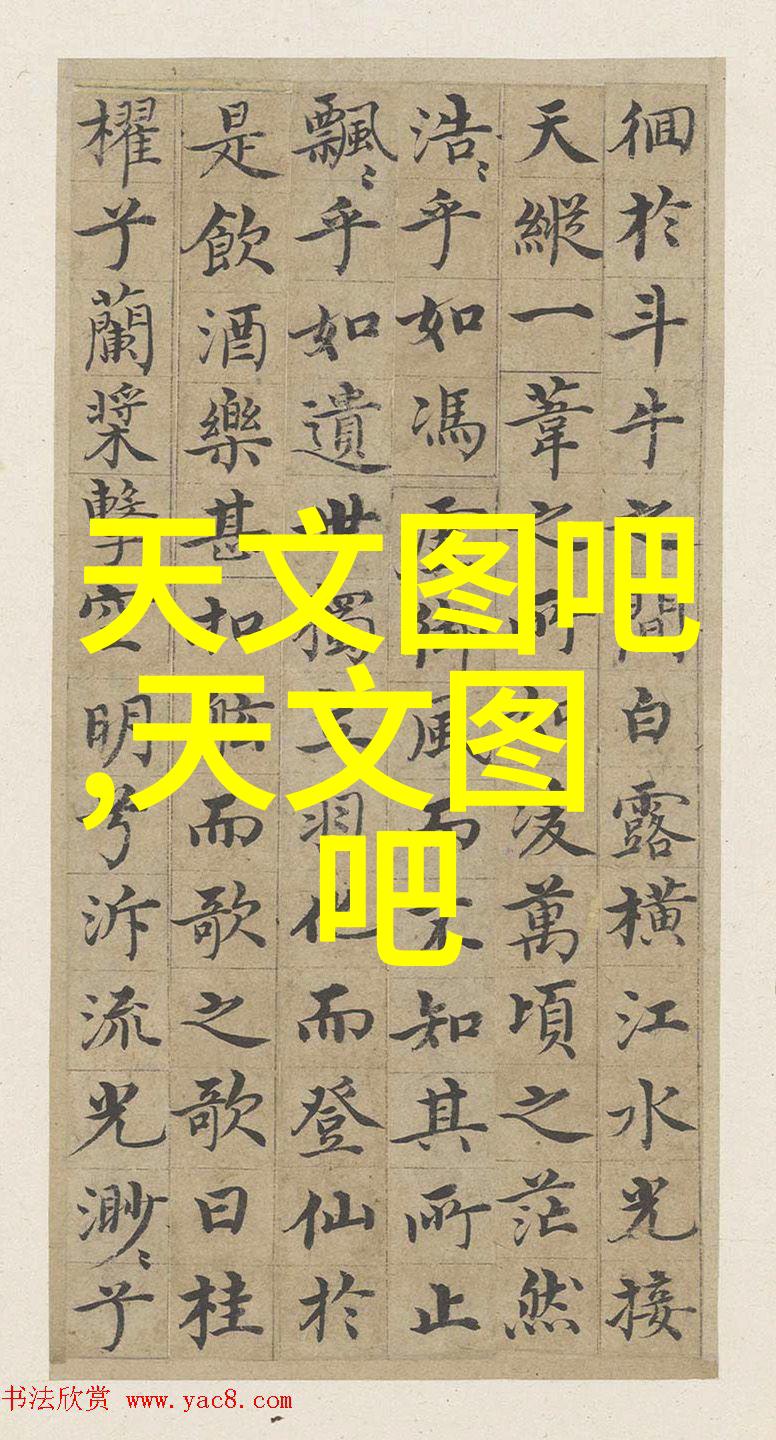 徊於斗牛之間白露橫江水光接
天縱一葦之所如凌萬頃之茫然
浩〻乎如馮虛御風而不知其所止
飄〻乎如遺世獨立羽化而登仙於
是飲酒樂甚扣舷而歌之歌曰桂
櫂兮蘭槳擊空明兮泝流光渺〻兮
天文图吧
,天文图
吧
书法欣赏 www.yac8.com